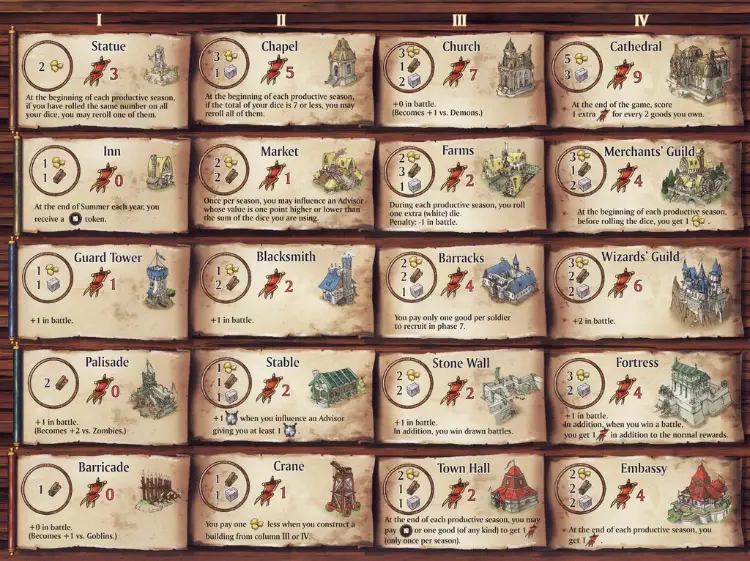 I II III IV
Statue
2
3
At the beginning of each productive season,
if you have rolled the same number on all
your dice, you may reroll one of them.
Chapel
3
1
5
At the beginning of each productive season,
if the total of your dice is 7 or less, you may
reroll all of them.
Church
3
1
2
7
+0 in battle.
(Becomes +1 vs. Demons.)
Cathedral
5
3
9
At the end of the game, score
1 extra for every 2 goods you own.
Inn
1
1
0
At the end of Summer each year, you
receive a token.
Market
2
1
1
Once per season, you may influence an Advisor
whose value is one point higher or lower than
the sum of the dice you are using.
Farms
2
3
1
2
During each productive season, you roll
one extra (white) die.
Penalty: -1 in battle.
Merchants' Guild
3
1
2
4
At the beginning of each productive season,
before rolling the dice, you get 1 .
Guard Tower
1
1
1
+1 in battle.
Blacksmith
1
2
2
+1 in battle.
Barracks
1
2
1
4
You pay only one good per soldier
to recruit in phase 7.
Wizards' Guild
3
2
6
+2 in battle.
Palisade
2
0
+1 in battle.
(Becomes +2 vs. Zombies.)
Stable
1
1
1
2
+1 when you influence an Advisor
giving you at least 1 .
Stone Wall
2
2
2
+1 in battle.
In addition, you win drawn battles.
Fortress
3
2
2
4
+1 in battle.
In addition, when you win a battle,
you get 1 in addition to the normal rewards.
Barricade
1
0
+0 in battle.
(Becomes +1 vs. Goblins.)
Crane
1
1
1
You pay one less when you construct a
building from column III or IV.
Town Hall
2
1
1
2
At the end of each productive season, you may
pay or one good (of any kind) to get 1
(only once per season).
Embassy
2
2
2
4
At the end of each productive season, you
get 1 .